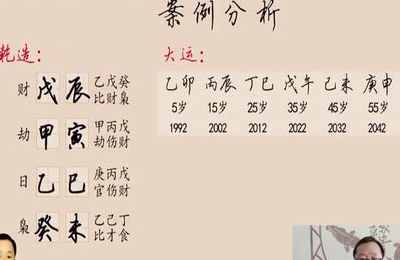 案例分析
乾造：
财 戊 辰 乙戊癸
比财枭
劫 甲 寅 甲丙戊
劫伤财
日 乙 巳 庚丙戊
官伤财
枭 癸 未 乙己丁
比才食
大运：
乙卯 丙辰 丁巳 戊午 己未 庚申
5岁 15岁 25岁 35岁 45岁 55岁
1992 2002 2012 2022 2032 2042